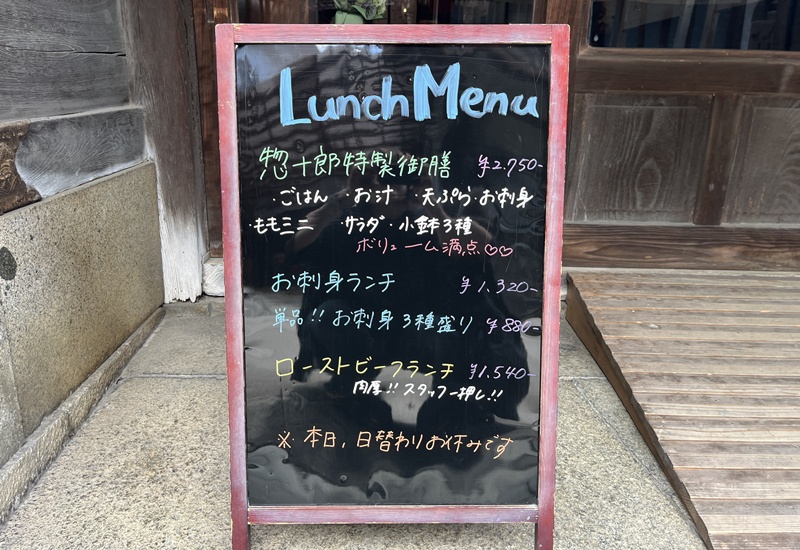 Lunch Menu
惣十郎特製御膳 ¥2.750-
・ごはん ・お汁 ・天ぷら・お刺身
・ももミニ サラダ・小鉢3種
ボリューム満点♡♡
お刺身ランチ ¥1.320-
単品!! お刺身3種盛り ¥880-
ローストビーフランチ ¥1.540-
肉厚!! スタッフ一押し!!
※ 本日、日替わりお休みです